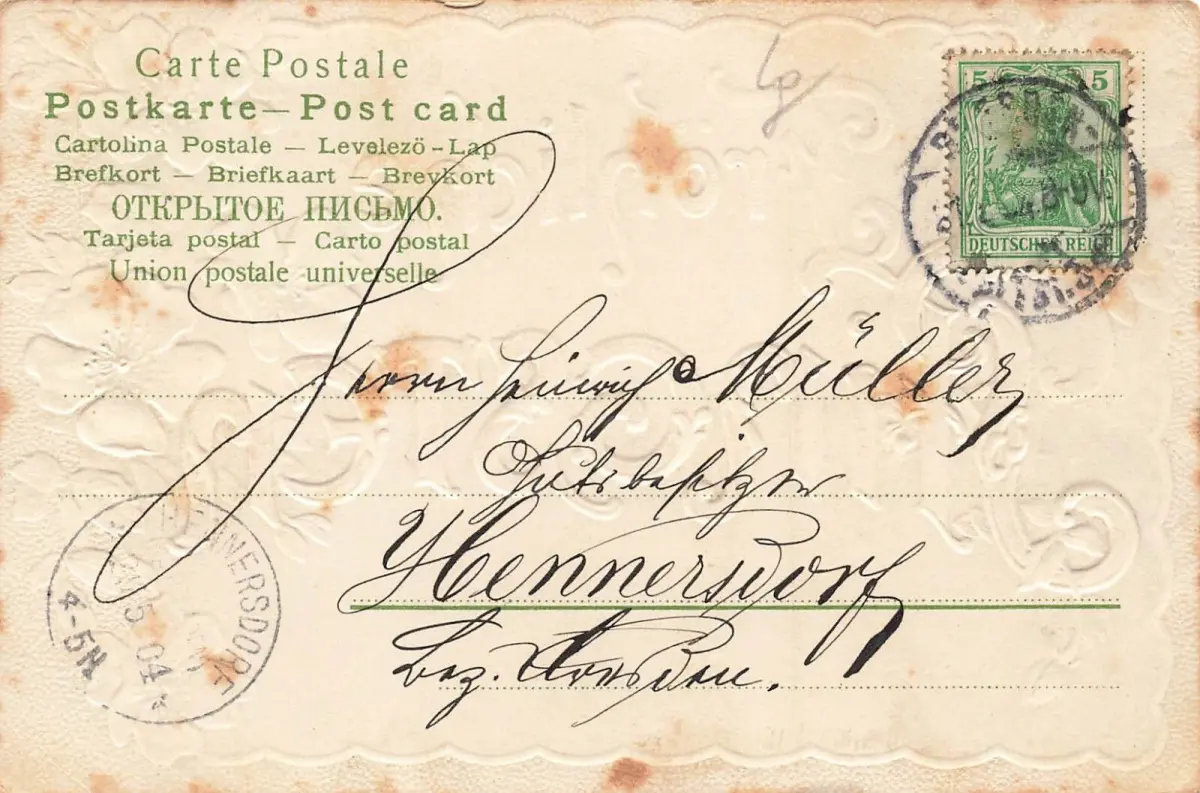 Carte Postale
Postkarte — Post card
Cartolina Postale — Levelezö-Lap
Brefkort — Briefkaart — Brevkort
ОТКРЫТОЕ ПИСЬМО.
Tarjeta postal — Carto postal
Union postale universelle
5 5
DEUTSCHES REICH
Herrn Heinrich Müller
Gutsbesitzer
Hennersdorf
Bez. Dresden.
HENNERSDORF
5 04
4-5N